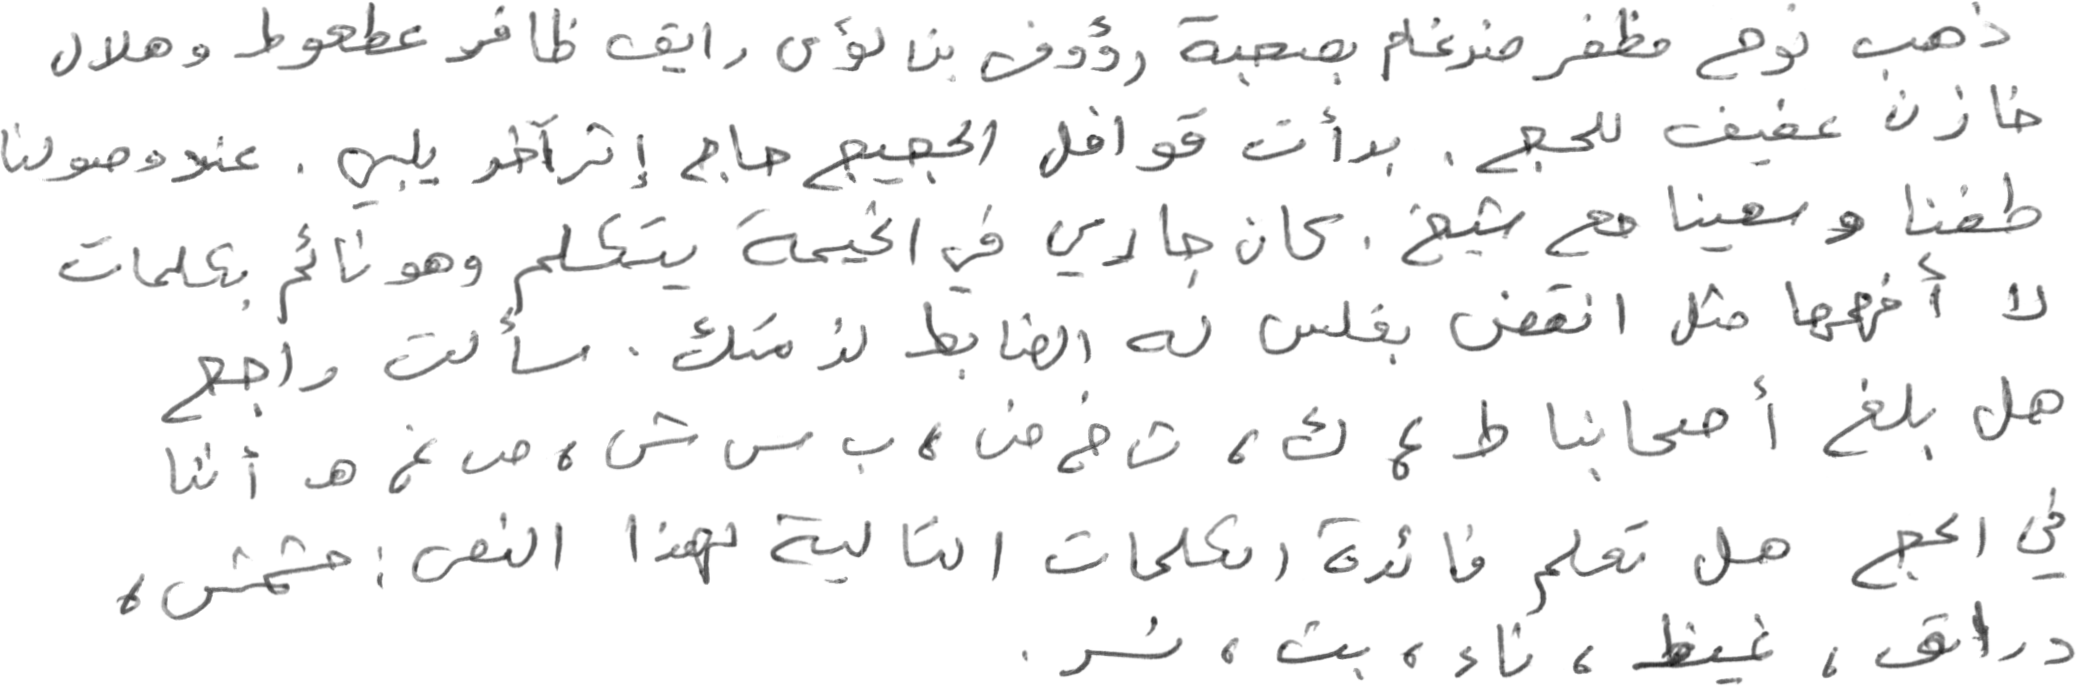 ذهب نوح مظفر ضرغام بصحبة رؤوف بن لؤي رايق ظافر عطعوط وهلال
خازن عفيف للحج . بدأت قوافل الحجيج حاج إثر آخر يلبي . عند وصولنا
طفنا وسعينا مع شيخ . كان جاري في الخيمة يتكلم وهو نائم بكلمات
لا أفهمها مثل انقض بفلس نه الضابط لذ منك . سألت راجع
هل بلغ أصحابنا ط ع ك ، ث خ ض ، ب س ش ، ص غ هـ أننا
في الحج هل تعلم فائدة الكلمات التالية لهذا النص : مشمش ،
دراق ، غيظ ، ناء ، بت ، نسر .